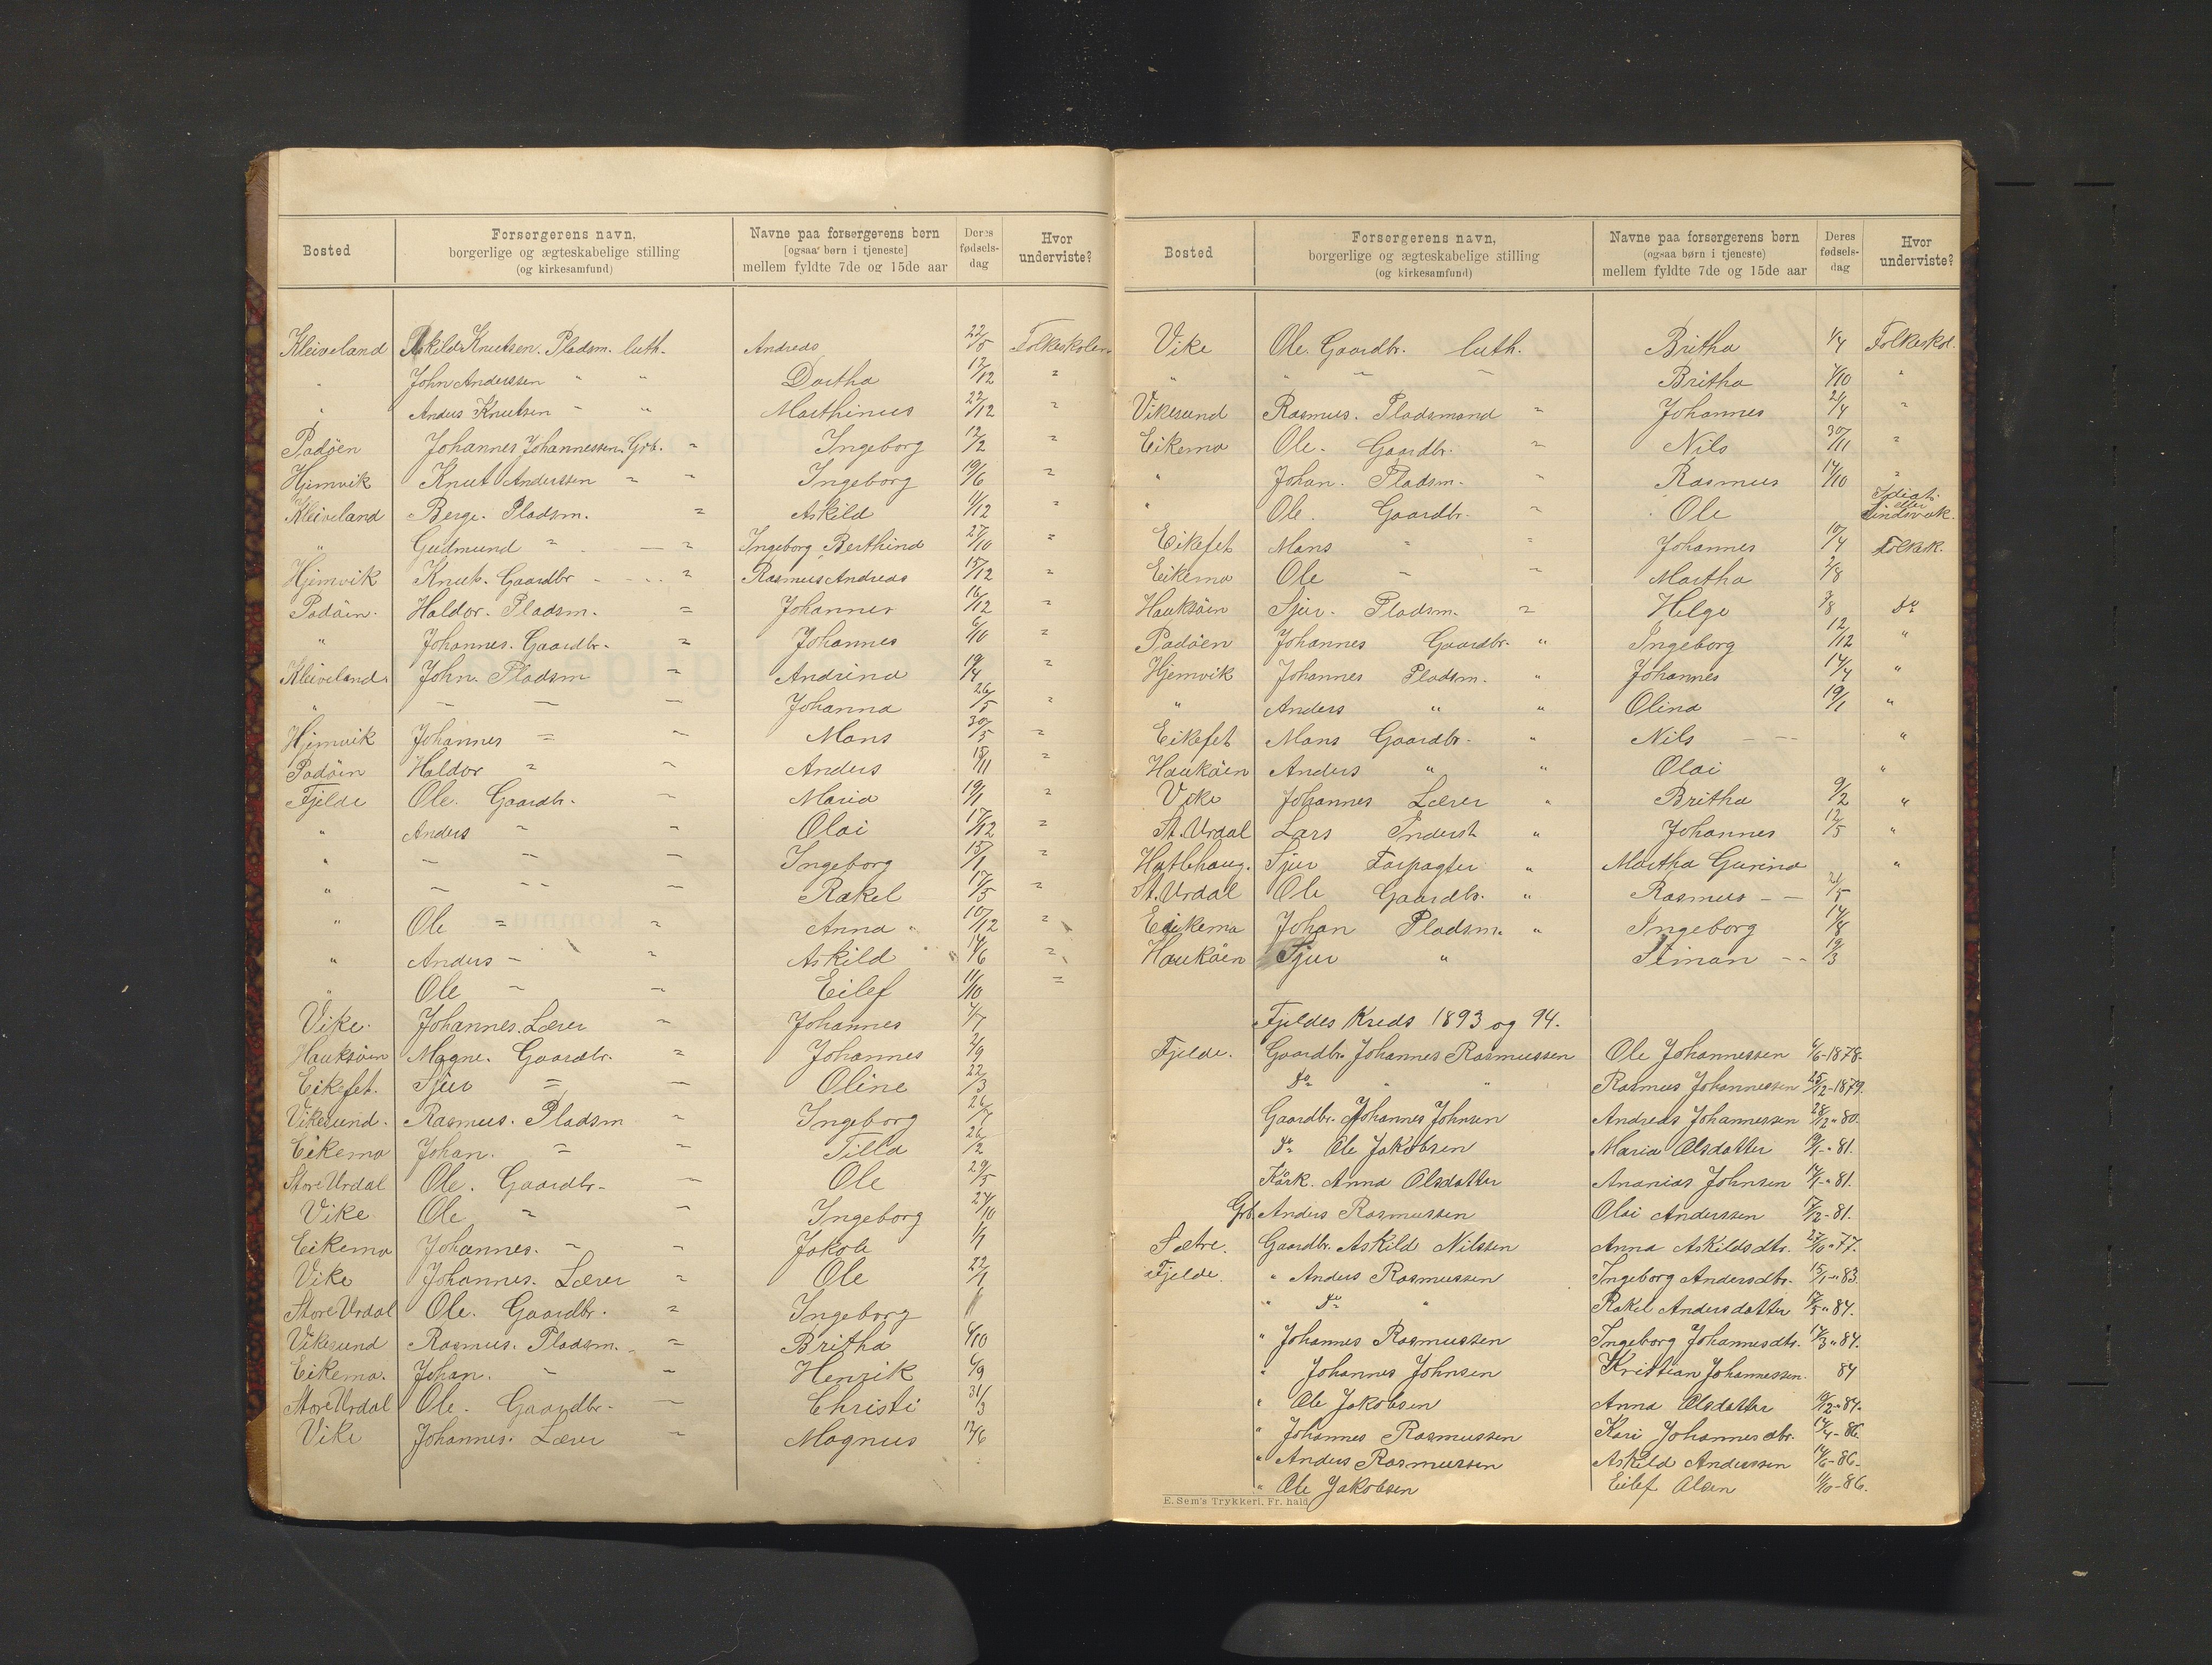 Bosted | Forsørgerens navn, borgerlige og ægteskabelige stilling (og kirkesamfund) | Navne paa forsørgerens børn [ogsaa børn i tjeneste] mellem fyldte 7de og 15de aar | Deres fødsels-dag | Hvor underviste?
Kleiveland Askild Knutsen. Pladsm. luth. Andreas 22/5 Folkeskolen
" John Anderssen " " Dortha 17/12 "
" Anders Knutsen " " Marthinus 22/12 "
Padöen Johannes Johannessen. Grb. " Ingeborg 12/2 "
Hjemvik Knut Anderssen " " Ingeborg 19/6 "
Kleiveland Berge. Pladsm. " Askild 11/12 "
" Gudmund " " Ingeborg Berthina 27/10 "
Hjemvik Knut. Gaardbr " Rasmus Andreas 15/12 "
Padöen. Haldor. Pladsm. " Johannes 16/12 "
" Johannes. Gaardbr. " Johannes 6/10 "
Kleiveland. John. Pladsm " Andrina 19/4 "
" — — — Johanna 26/5 "
Hjemvik Johannes " " Mons 30/5 "
Padöen Haldor " " Anders 18/11 "
Fjelde Ole. Gaardb. " Maria 19/1 "
" Anders " " Olai 17/12 "
" — — — Ingeborg 15/1 "
" — — — Rakel 17/5 "
" Ole " " Anna 10/12 "
" Anders " " Askild 14/6 "
" Ole " " Eilef 11/10 "
Vike. Johannes. Lærer " Johannes
Hauksöen Magne. Gaardbr. " Johannes 2/9
Eikefet. Sjur " — Oline 22/3
Vikesund. Rasmus. Pladsm " Ingeborg
Eikemo Johan. " " Tilla 26/2
Store Urdal Ole. Gaardb. — Ole 29/5
Vike Ole " " Ingeborg 27/10
Eikemo Johannes. " " Jakob 1/1
Vike Johannes. Lærer " Ole 22/1
Store Urdal Ole. Gaardbr. " Ingeborg
Vikesund Rasmus. Pladsm. " Britha
Eikemo. Johan. " " Henrik 6/9
Store Urdal Ole. Gaardbr. — Christi 31/3
Vike Johannes. Lærer " Magnus 12/6
Bosted | Forsørgerens navn, borgerlige og ægteskabelige stilling (og kirkesamfund) | Navne paa forsørgerens børn (ogsaa børn i tjeneste) mellem fyldte 7de og 15de aar | Deres fødsels-dag | Hvor underviste?
Vike Ole. Gaardbr. luth. Britha 1/4 Folkeskol.
" " " " Britha "
Vikesund Rasmus. Pladsmand " Johannes 24/4 "
Eikemo Ole. Gaardb. " Nils 30/11 "
" Johan. Pladsm. " Rasmus 14/10 "
" Ole. Gaardbr. " Ole Idiot eller Sindsvak.
Eikefet Mons " " Johannes 10/4 Folkesk.
Eikemo Ole " " Martha 2/8
Hauksöen Sjur. Pladsm. " Helge 3/8 do
Padöen Johannes Gaardbr. " Ingeborg 12/12 "
Hjemvik Johannes Pladsm. " Johannes 14/4 "
" Anders " " Olina 19/1 "
Eikefet Mons Gaardbr. " Nils — — "
Hauköen Anders " " Olai "
Vike Johannes Lærer " Britha 9/2 "
St. Urdal Lars Inderst " Johannes 12/5 "
Hatlehaug. Sjur Forpagter " Martha Gurina "
St. Urdal Ole Gaardbr. " Rasmus — —
Eikemo Johan Pladsm. " Ingeborg 14/8
Hauköen Sjur " Simon — — 19/3
Fjeldes Kreds 1893 og 94.
Fjelde. Gaardbr. Johannes Rasmussen Ole Johannessen 6/6-1878.
do " " Rasmus Johannessen 25/12-1879.
Gaardbr. Johannes Johnsen Andreas Johannessen 28/12 " 80.
do Ole Jakobsen Maria Olsdatter 19/1 - " 81.
Kårk. Anna Olsdatter Ananias Johnsen 14/1 - " 81.
Grb. Anders Rasmussen Olai Anderssen 17/12 - 81.
Sætre. Gaardbr. Askild Nilssen Anna Askildsdtr. 27/10 " 77.
Fjelde. " Anders Rasmussen Ingeborg Andersdtr. 15/1 - " 83.
" do " Rakel Andersdatter 17/5 " 84.
" Johannes Rasmussen Ingeborg Johannesdtr. 17/3 " 84.
" Johannes Johnsen Kristian Johannessen. 84
" Ole Jakobsen Anna Olsdatter 10/12 " 84.
" Johannes Rasmussen Kari Johannesdtr. 14/4 - 86.
" Anders Rasmussen Askild Anderssen 14/6 - 86.
" Ole Jakobsen Eilef Olsen 11/10 - 86.
E. Sem's Trykkeri, Fr. hald